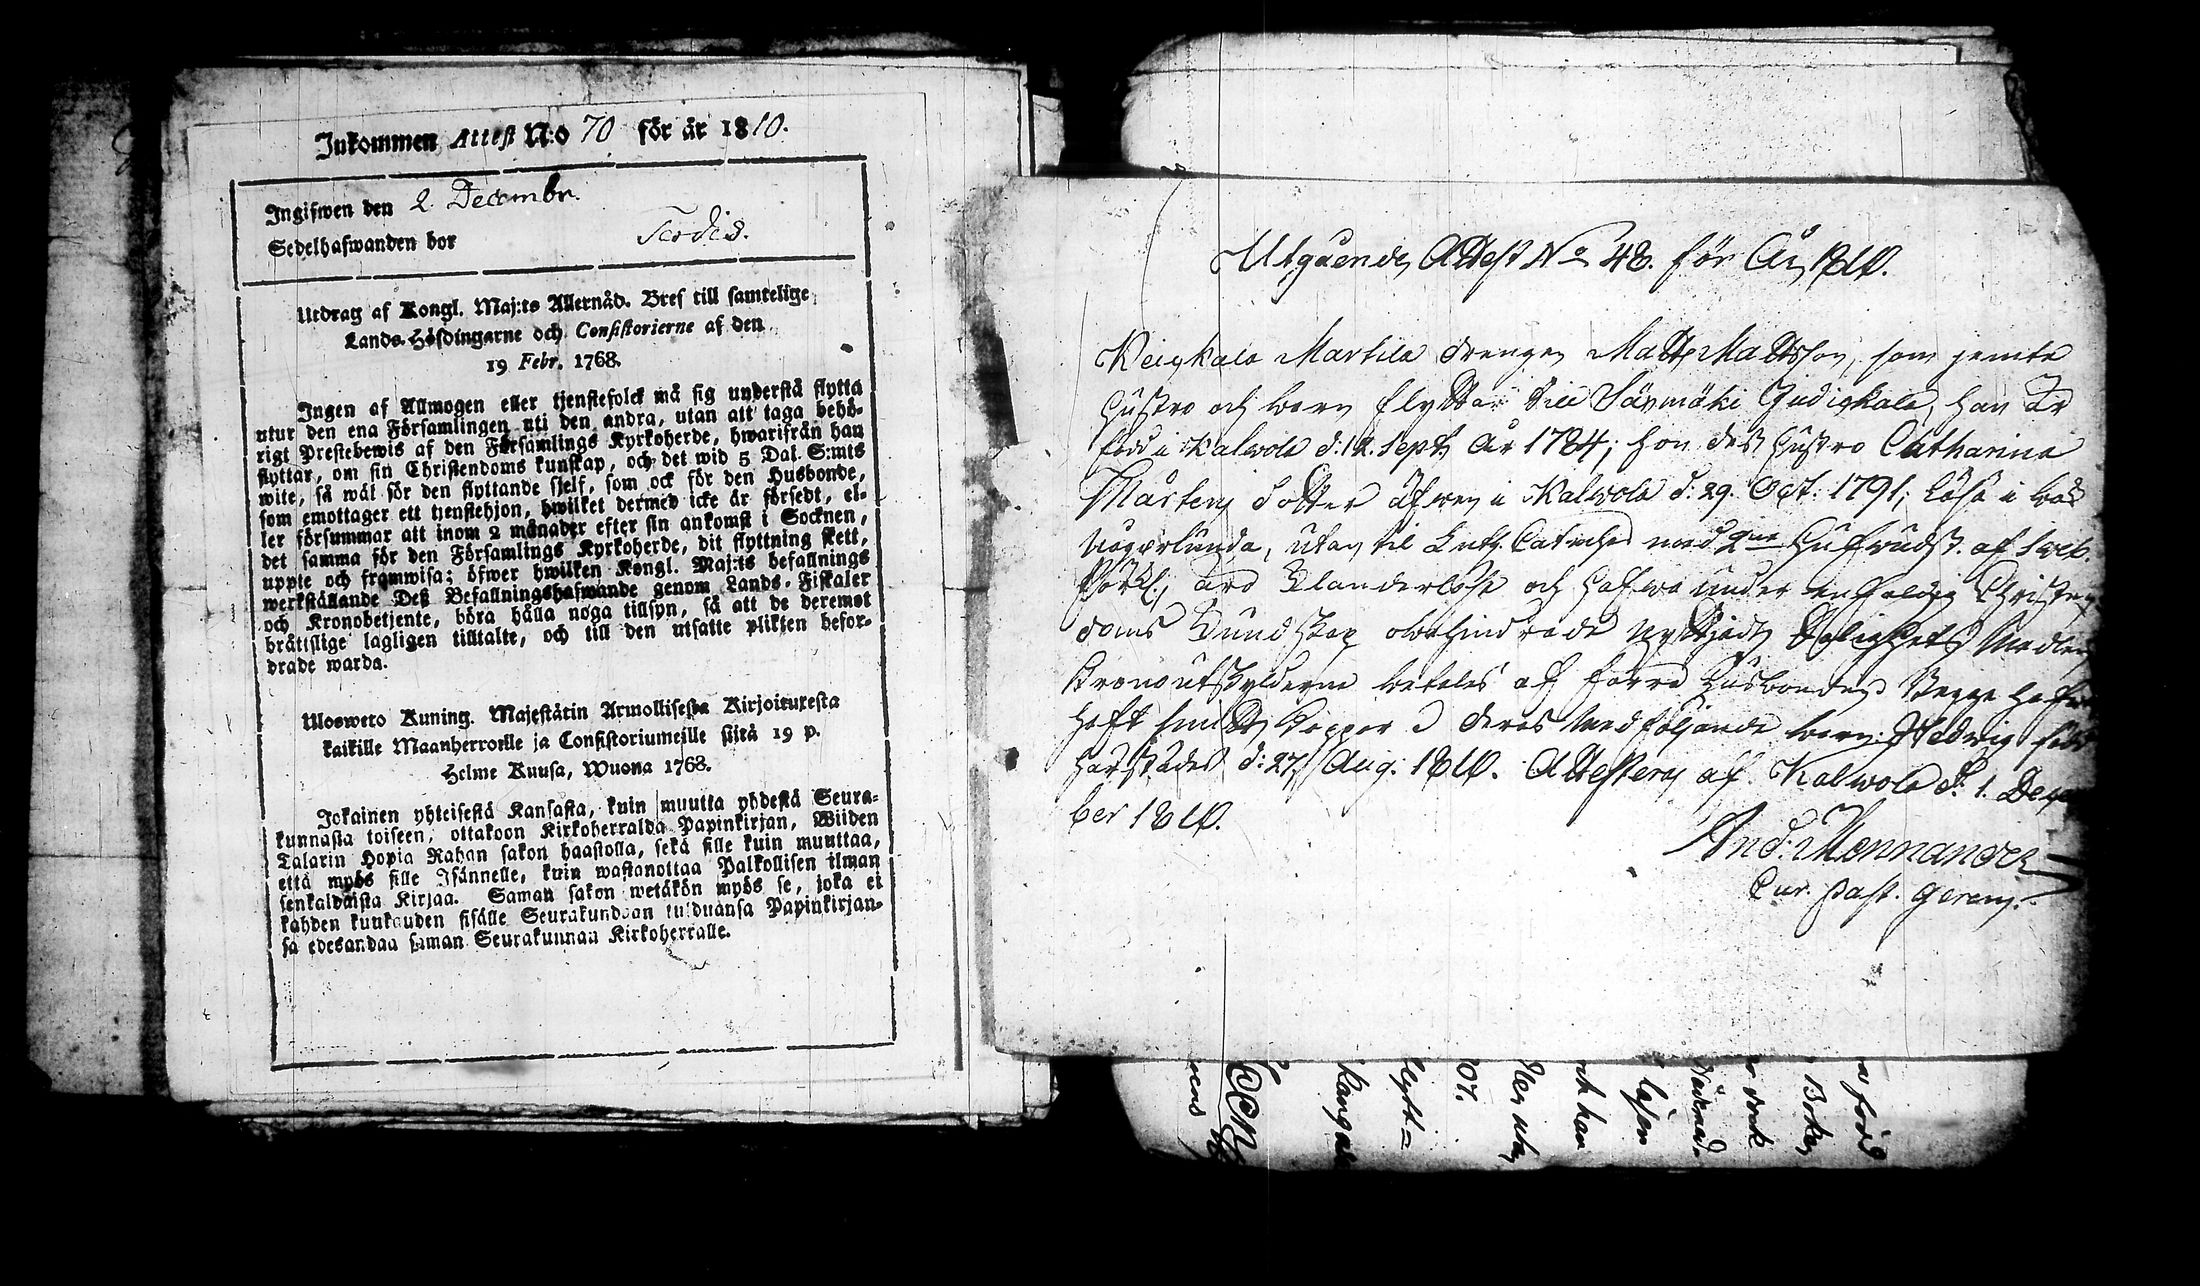 Inkommen Attest N:o 70 för år 1810.
Ingifwen den 2 Decembr.
Sedelhafwanden bor
Utdrag af Kongl. Maj:ts Allernåd. Bref till samtelige
Lands-Höfdingarne och Consistorierne af den
19 Febr. 1768.
Ingen af Allmogen eller tjenstefolck må sig understå flytta
utur den ena Församlingen uti den andra, utan att taga behö-
rigt Prestebewis af den Församlings Kyrkoherde, hwarifrån han
flyttar, om sin Christendoms kunskap, och det wid 5 Dal. S:mts
wite, så wäl för den flyttande sjelf, som ock för den Husbonde,
som emottager ett tjenstehjon, hwilket dermed icke är försedt, el-
ler försummar att inom 2 månader efter sin ankomst i Socknen,
det samma för den Församlings Kyrkoherde, dit flyttning skett,
uppte och framwisa; öfwer hwilken Kongl. Maj:ts befallnings
werkställande Deß Befallningshafwande genom Lands-Fiskaler
och Kronobetjente, böra hålla noga tillsyn, så att de deremot
bråttslige lagligen tilltalte, och till den utsatte plikten befor-
drade warda.
Ulosweto Kuning. Majestätin Armollisesta Kirjoituxesta
kaikille Maanherroille ja Consistoriumeille siitä 19 p.
Helme Kuusa, Wuona 1768.
Jokainen yhteisestä Kansasta, kuin muutta yhdestä Seura-
kunnasta toiseen, ottakoon Kirkoherralda Papinkirjan, Wiiden
Talarin Hopia Rahan sakon haastolla, sekä sille kuin muuttaa,
että myös sille Isännelle, kuin wastanottaa Palkollisen ilman
senkaldaista Kirjaa. Saman sakon wetäkön myös se, joka ei
kahden kuukauden sisälle Seurakundaan tulduansa Papinkirjan-
sa edesandaa saman Seurakunnan Kirkoherralle.
Utgåendes Attest No 48. för År 1810.
Keickala Martila drengen Matts Mattsson, som jemte
hustro och barn flyttar till Sävmäki Judickala, han är
född i Kalwola d: 12. Sept. år 1784; hon dess hustro Catharina
Mårtens dotter äfwen i Kalwola d: 29. Oct: 1791; läsa i bok
någorlunda, utan til Luth. Catechес med 2ne Hufwudst. af Sweb.
Förkl., äro klanderlöse och hafwa under enfaldig Christen-
doms Kundskap obehindrade nyttjat Salighets Medlen
Kronoutskylderne betales af förra Husbonden Begge hafwa
haft Koppor deras medföljande barn: Hedwig född
härstädes d: 27 Aug: 1810. Attesteras af Kalwola d: 1. Decem
ber 1810.
And: Mennander
Cur. past. gerens.